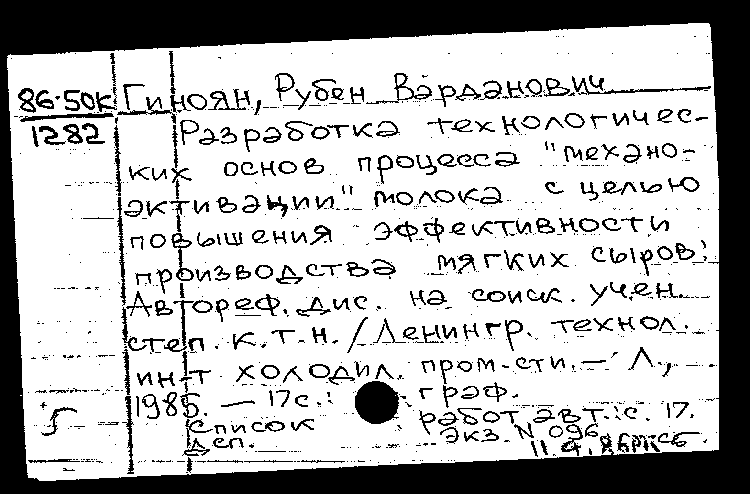 86-50к Гиноян, Рубен Варданович
1282 Разработка технологичес-
ких основ процесса "механо-
активации" молока с целью
повышения эффективности
производства мягких сыров:
Автореф. дис. на соиск. учен.
степ. к.т.н. / Ленингр. технол.
ин-т холодил. пром-сти. — Л.,
1985. — 17с.: граф.
Список работ авт.: с. 17.
Дсп. Экз. N 096
11.9.86